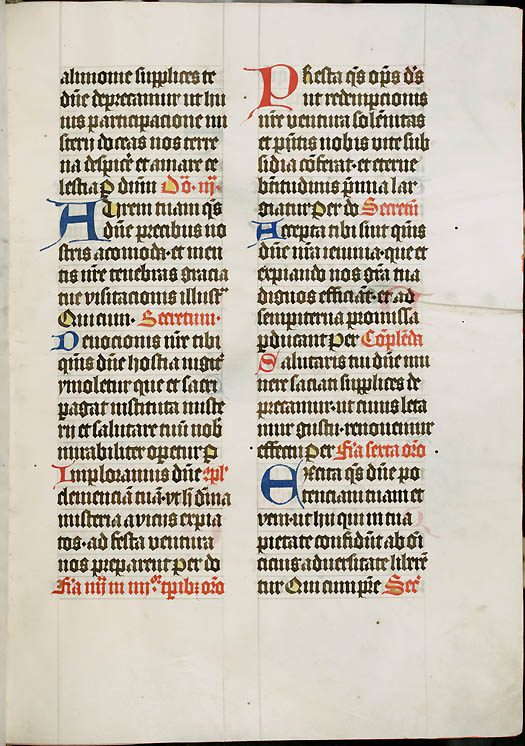 alimonie supplices te
dn̄e deprecamur ut hu
ius participacione mi
sterij doceas nos terre
na despicē et amare ce
lestia P dn̄m Dō· iij·
Aurem tuam qs̄
dn̄e precibus no
stris acomoda· et men
tis nr̄e tenebras gracia
tue visitacionis illustᵃ
Qui cum· Secretum·
Deuocionis nr̄e tibi
qs̄ dn̄e hostia iugit᷑
ymoletur que et sacri
pagat instituta miste
rij et salutare tuū nob
mirabiliter operetur P
Imploramus dn̄e cp̄l᷑
clemenciā tuā· ut h̄ diīna
misteria a vicijs expia
tos· ad festa ventura
nos preparent Per do
Fīa iiij in iiij ͦʳ tp̄ibꝫ orō
PResta qs̄ op̄s ds̄
ut redempcionis
nr̄e ventura solēnitas
et pn̄tis nobis vite sub
sidia cōferat· et eterne
bt̄itudinis p̄mia lar
giatur Per do Secretū
Accepta tibi sint qs̄
dn̄e nr̄a ieiunia· que et
expiando nos gr̄a tua
dignos efficiāt· et ad
sempiterna promissa
pducant Per Cōplēda
Salutaris tui dn̄e mu
nere saciati supplices de
precamur· ut cuius leta
mur gustu· renouemur
effectu Per Fīa sexta orō
EXcita qs̄ dn̄e po
tenciam tuam et
veni· ut hij qui in tua
pietate confidūt ab oī
cicius aduersitate liberē
tur Qui cum pr̄e Sec̄